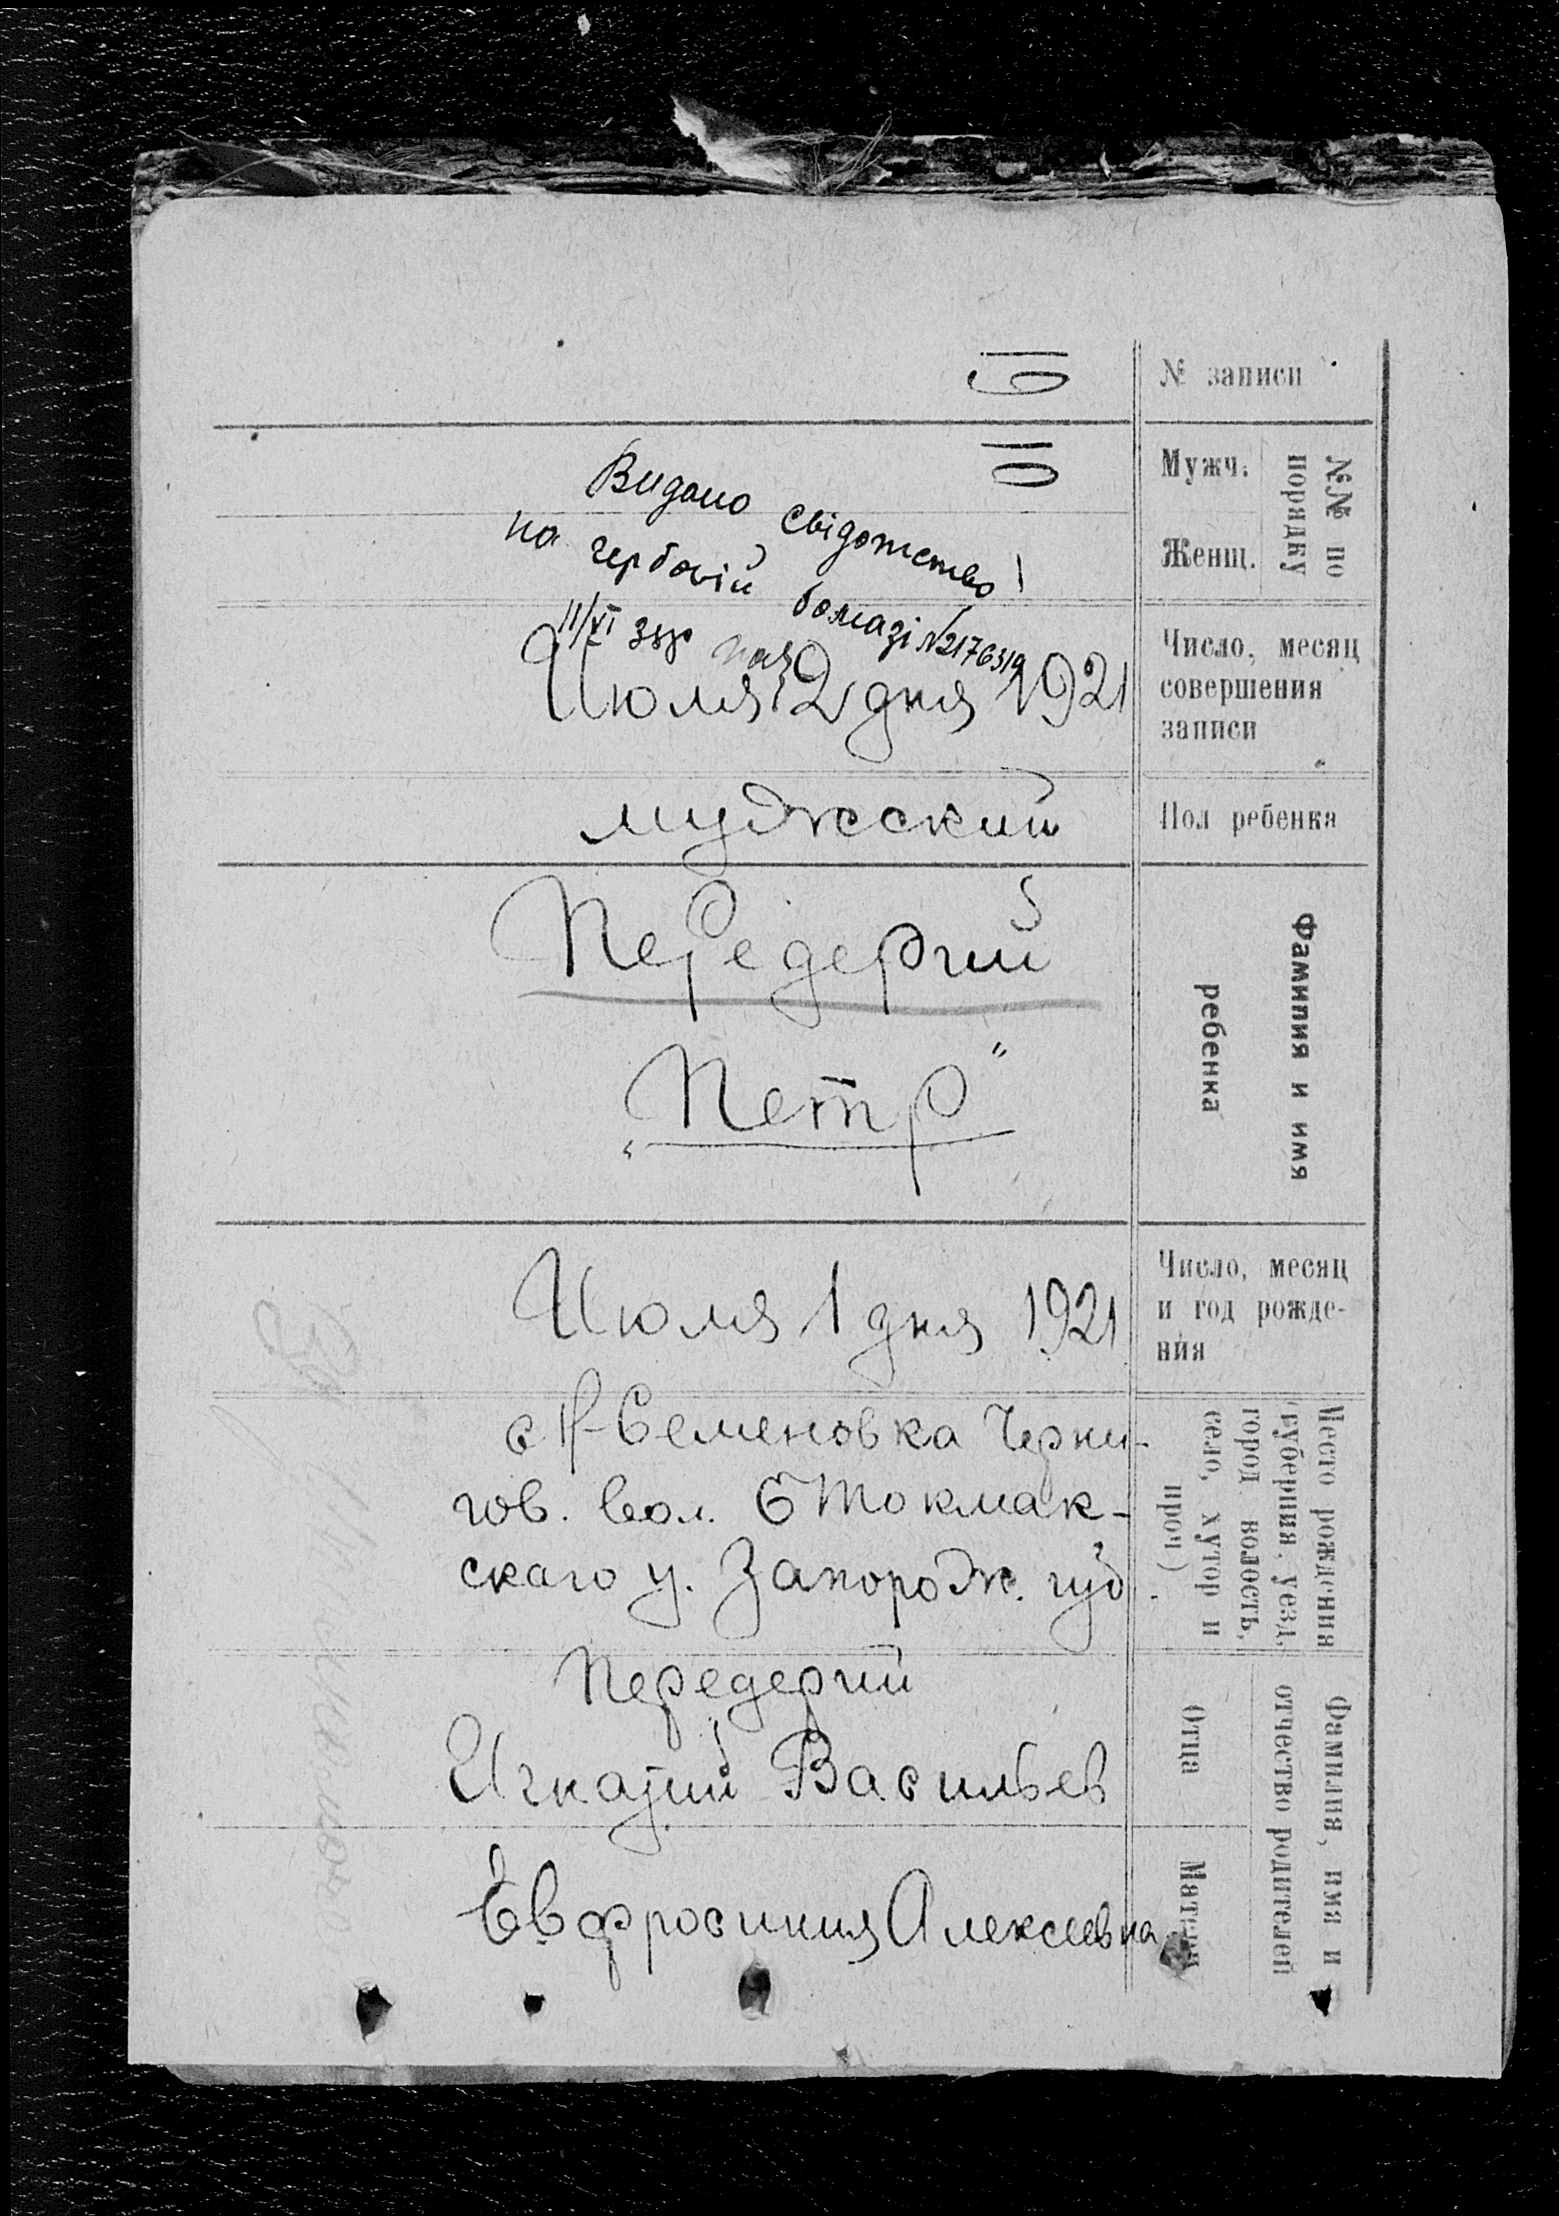 № записи
19
№№ по
порядку
Мужч.
10
Женщ.
Видано свідоцтво
на гербовій бомазі №2176319
11/VI
Число, месяц
совершения
записи
Июля 2 дня 1921
Пол ребенка
мужеский
Фамилия и имя
ребенка
Передерий
„Петр“
Число, месяц
и год рожде-
ния
Июля 1 дня 1921
Место рождения
(губерния, уезд,
город волость,
село, хутор и
проч)
с Н-Семеновка Черни-
гов. вол. Б Токмак-
скаго у. Запорож. губ.
Фамилия, имя и
отчество родителей
Отца
Передерий
Игнатий Васильев
Матери
Евфросиния Алексеевна